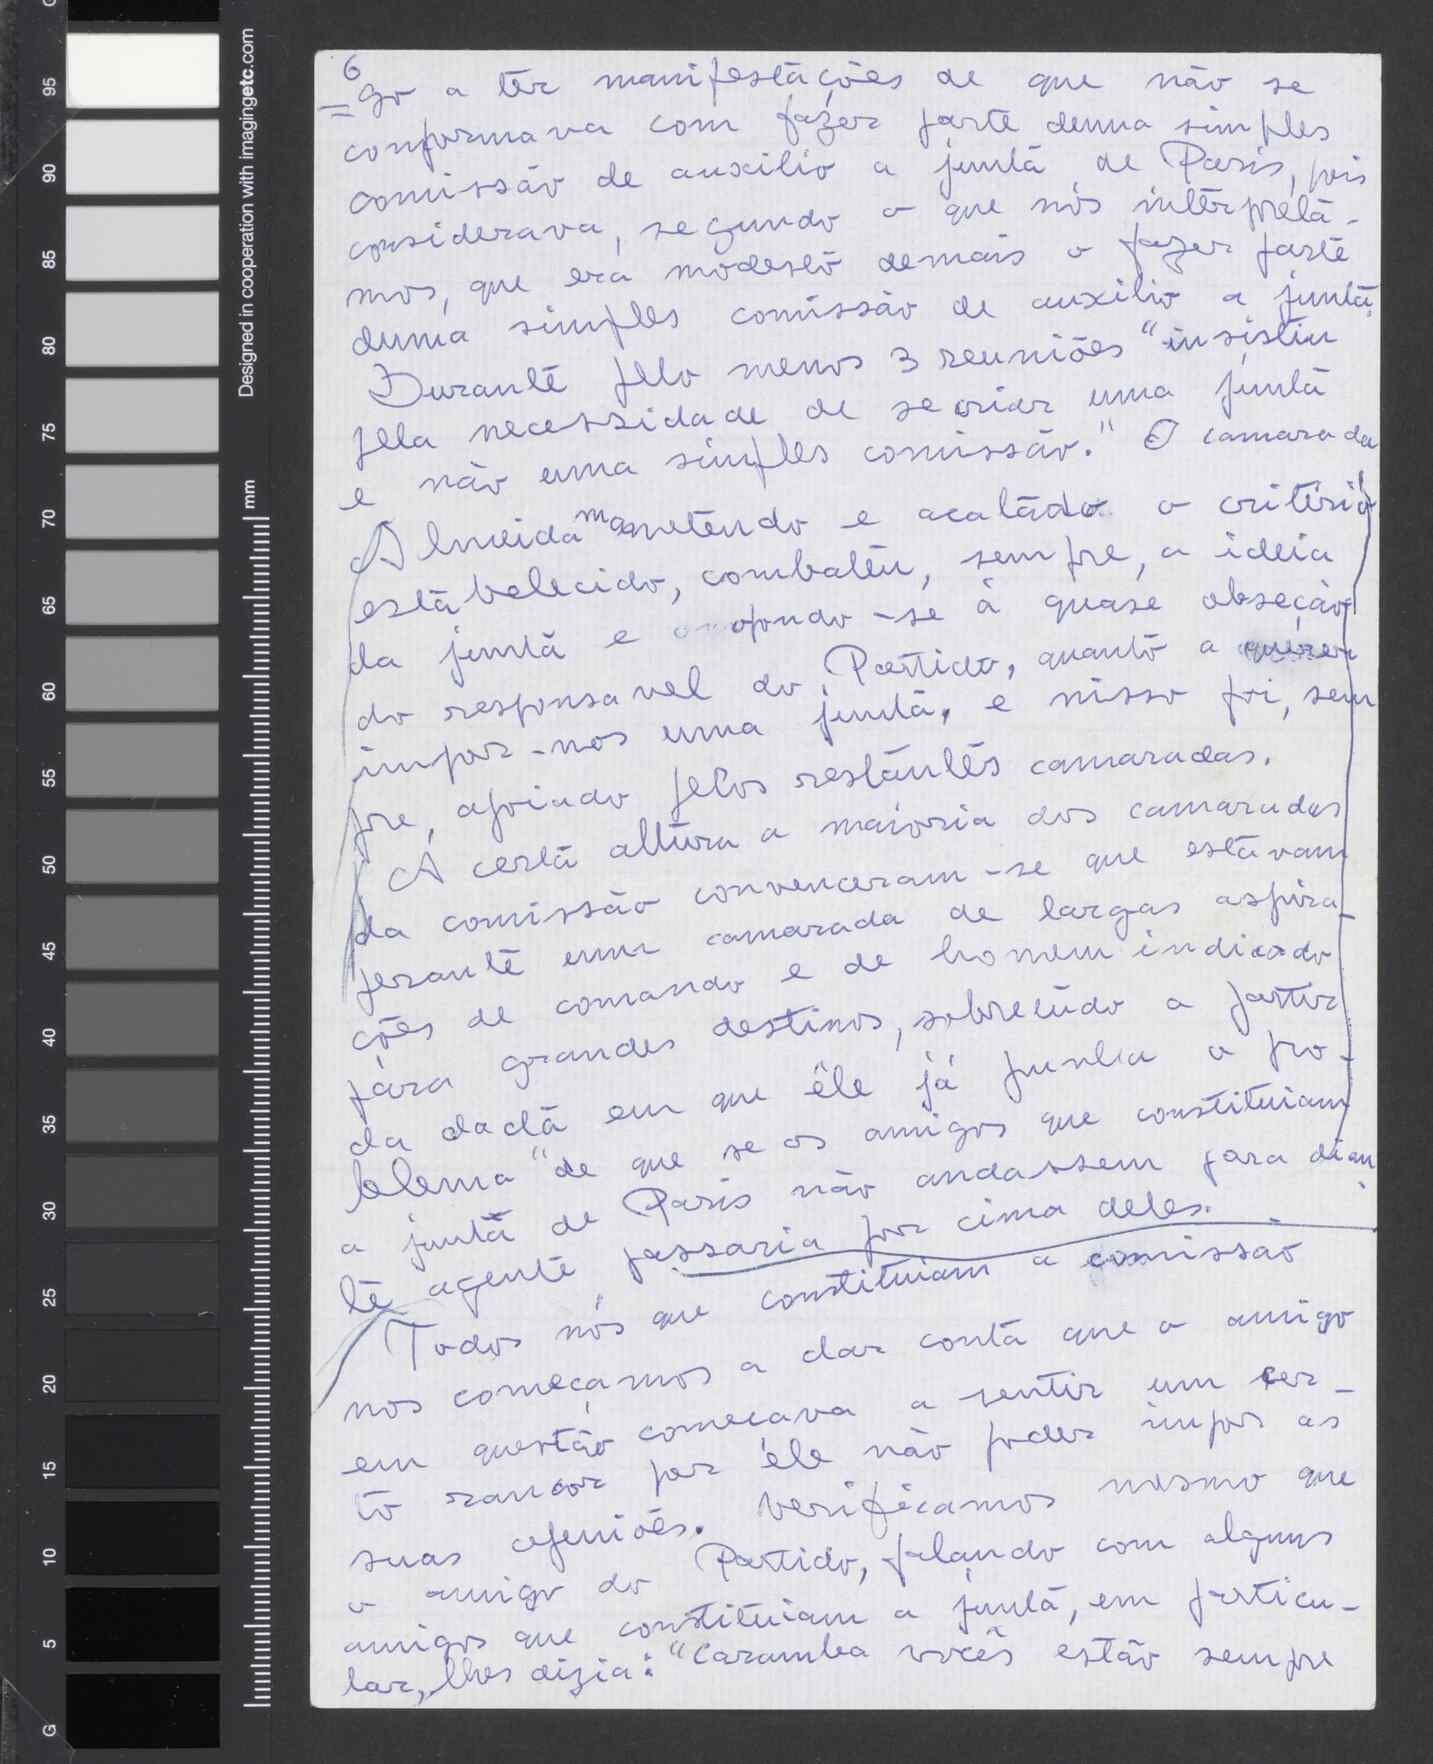 6
go a ter manifestações de que não se
conformava com fazer parte duma simples
comissão de auxilio a junta de Paris, pois
considerava, segundo o que nós interpreta-
mos, que era modesto demais o fazer parte
duma simples comissão de auxilio a junta.
Durante pelo menos 3 reuniões "insistiu
pela necessidade de se criar uma junta
e não uma simples comissão." O camarada
Almeida mantendo e acatádo o critério
estabelecido, combateu, sempre, a ideia
da junta e opondo-se à quase obseção
do responsavel do Partido, quanto a querer
impor-nos uma junta, e nisso foi, sem
pre, apoiado pelos restantes camaradas.
A certa altura a maioria dos camaradas
da comissão convenceram-se que estavam
perante um camarada de largas aspira-
ções de comando e de homem indicado
para grandes destinos, sobretudo a partir
da dacta em que êle já punha o pro-
blema "de que se os amigos que constituiam
a junta de Paris não andassem para dian
te agente passaria por cima deles.
Todos nós que constituiam a comissão
nos começamos a dar conta que o amigo
em questão começava a sentir um cer-
to rancor por êle não poder impor as
suas openiões. Verificamos mesmo que
o amigo do Partido, falando com alguns
amigos que constituiam a junta, em particu-
lar, lhes dizia: "Caramba vocês estão sempre
Designed in cooperation with imagingetc.com
mm
95
90
85
80
75
70
65
60
55
50
45
40
35
30
25
20
15
10
5
G